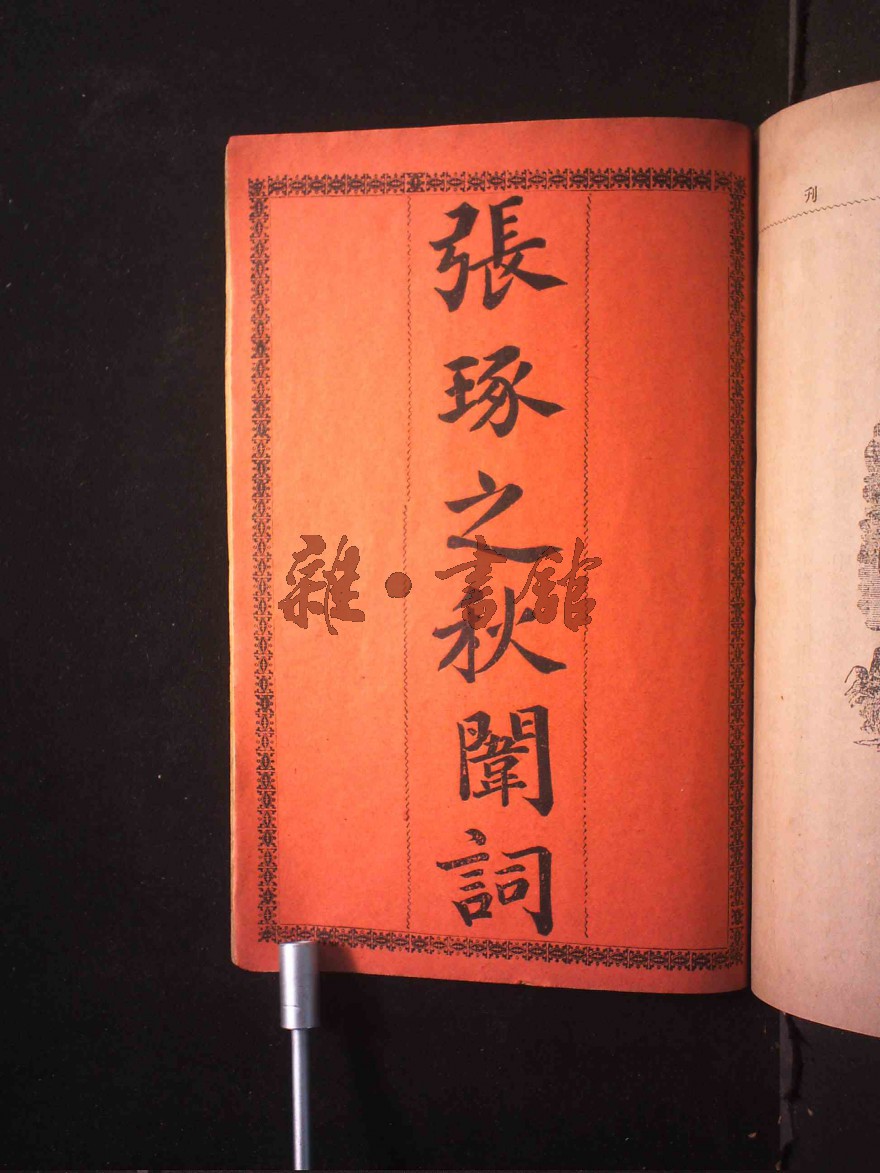 張琢之秋闈詞
雜·書館
刊